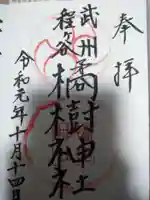 奉拝
武州
程ヶ谷
橘樹神社
令和元年十月十四日